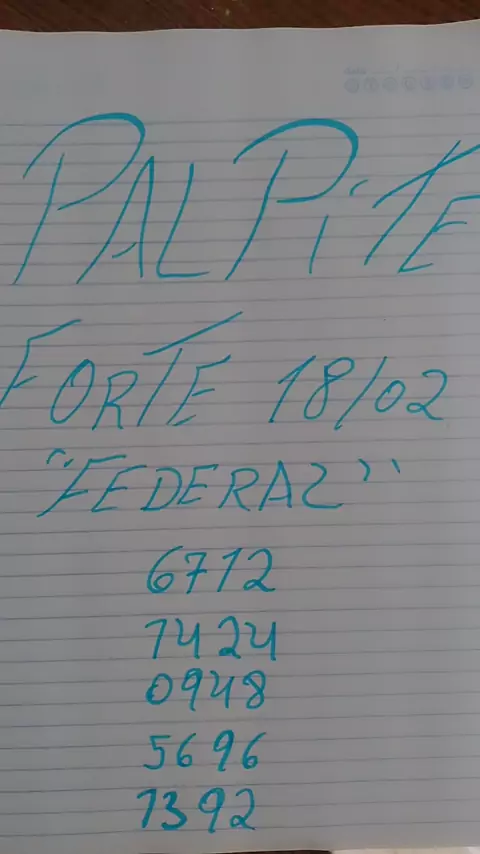 PALPiTE
FORTE 18/02
"FEDERAL"
6712
1424
0948
5696
1392